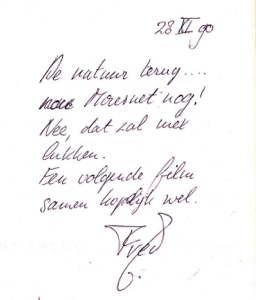 28 XI 90
De natuur terug....
naar Moresnet nog!
Nee, dat zal niet
lukken.
Een volgende film
samen hopelijk wel.
Fred